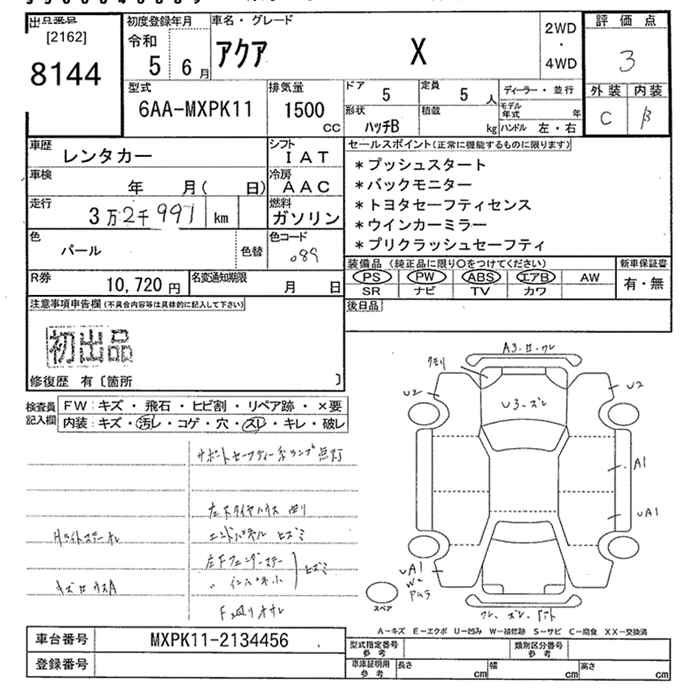 出品番号
[2162]
8144
初度登録年月
令和
5 6月
車名・グレード
アクア X
2WD
・
4WD
評価点
3
外装 内装
C β
型式
6AA-MXPK11
排気量
1500
CC
ドア
5
定員
5 人
形状
ハッチB
積載
kg
ディーラー・並行
モデル年式 年
ハンドル 左・右
車歴
レンタカー
シフト
IAT
車検
年 月( 日)
冷房
AAC
走行
3万2千991 km
燃料
ガソリン
色
パール
色替
色コード
089
R券
10,720円
名変通知期限
月 日
セールスポイント(正常に機能するものに限ります)
*プッシュスタート
*バックモニター
*トヨタセーフティセンス
*ウインカーミラー
*プリクラッシュセーフティ
装備品(純正品に限り○をつけてください)
PS PW ABS エアB AW
SR ナビ TV カワ
新車保証書
有・無
後日品
注意事項申告欄(不具合内容等は具体的に記入して下さい)
初出品
修復歴 有〔箇所 〕
検査員
記入欄
FW:キズ・飛石・ヒビ割・リペア跡・×要
内装:キズ・汚レ・コゲ・穴・スレ・キレ・破レ
エンドパネル ヒズミ
ヒズミ
U2
U3・ズレ
U2
A1
UA1
UA1
スペア
A-キズ E-エクボ U-凹み W-補修跡 S-サビ C-腐食 XX-交換済
車台番号
MXPK11-2134456
登録番号
型式指定番号
参考
類別区分番号
参考
車庫証明用
参考
長さ cm
幅 cm
高さ cm